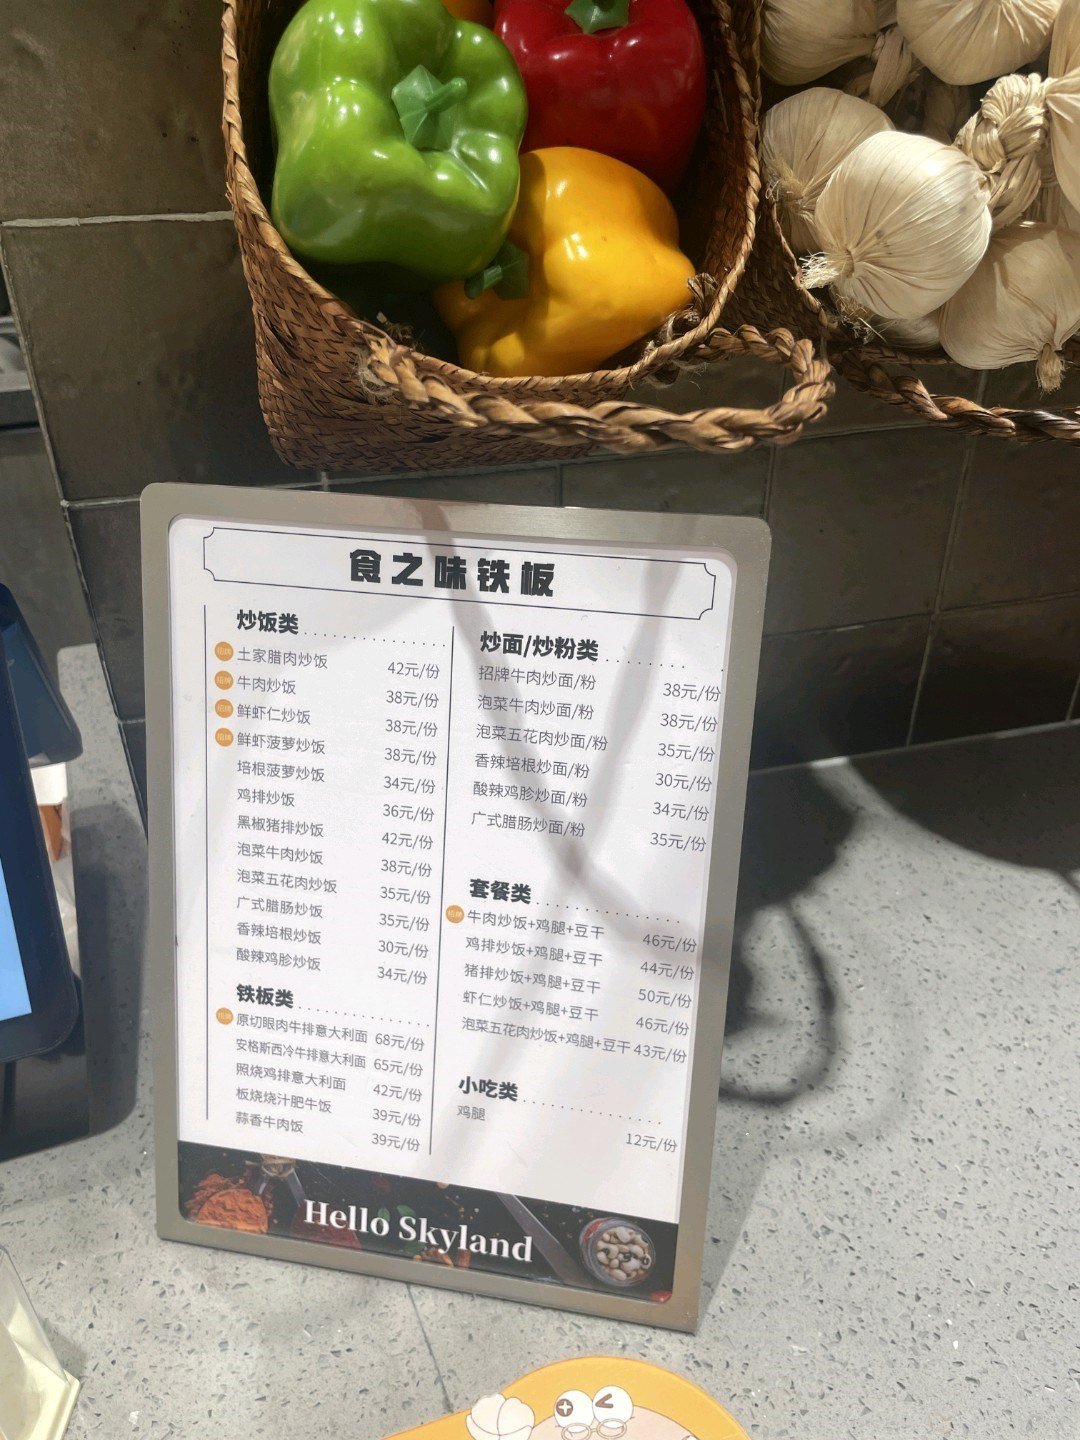 食之味铁板
炒饭类
招牌 土家腊肉炒饭 42元/份
招牌 牛肉炒饭 38元/份
招牌 鲜虾仁炒饭 38元/份
招牌 鲜虾菠萝炒饭 38元/份
培根菠萝炒饭 34元/份
鸡排炒饭 36元/份
黑椒猪排炒饭 42元/份
泡菜牛肉炒饭 38元/份
泡菜五花肉炒饭 35元/份
广式腊肠炒饭 35元/份
香辣培根炒饭 30元/份
酸辣鸡胗炒饭 34元/份
铁板类
招牌 原切眼肉牛排意大利面 68元/份
安格斯西冷牛排意大利面 65元/份
照烧鸡排意大利面 42元/份
板烧烧汁肥牛饭 39元/份
蒜香牛肉饭 39元/份
炒面/炒粉类
招牌牛肉炒面/粉 38元/份
泡菜牛肉炒面/粉 38元/份
泡菜五花肉炒面/粉 35元/份
香辣培根炒面/粉 30元/份
酸辣鸡胗炒面/粉 34元/份
广式腊肠炒面/粉 35元/份
套餐类
招牌 牛肉炒饭+鸡腿+豆干 46元/份
鸡排炒饭+鸡腿+豆干 44元/份
猪排炒饭+鸡腿+豆干 50元/份
虾仁炒饭+鸡腿+豆干 46元/份
泡菜五花肉炒饭+鸡腿+豆干 43元/份
小吃类
鸡腿 12元/份
Hello Skyland